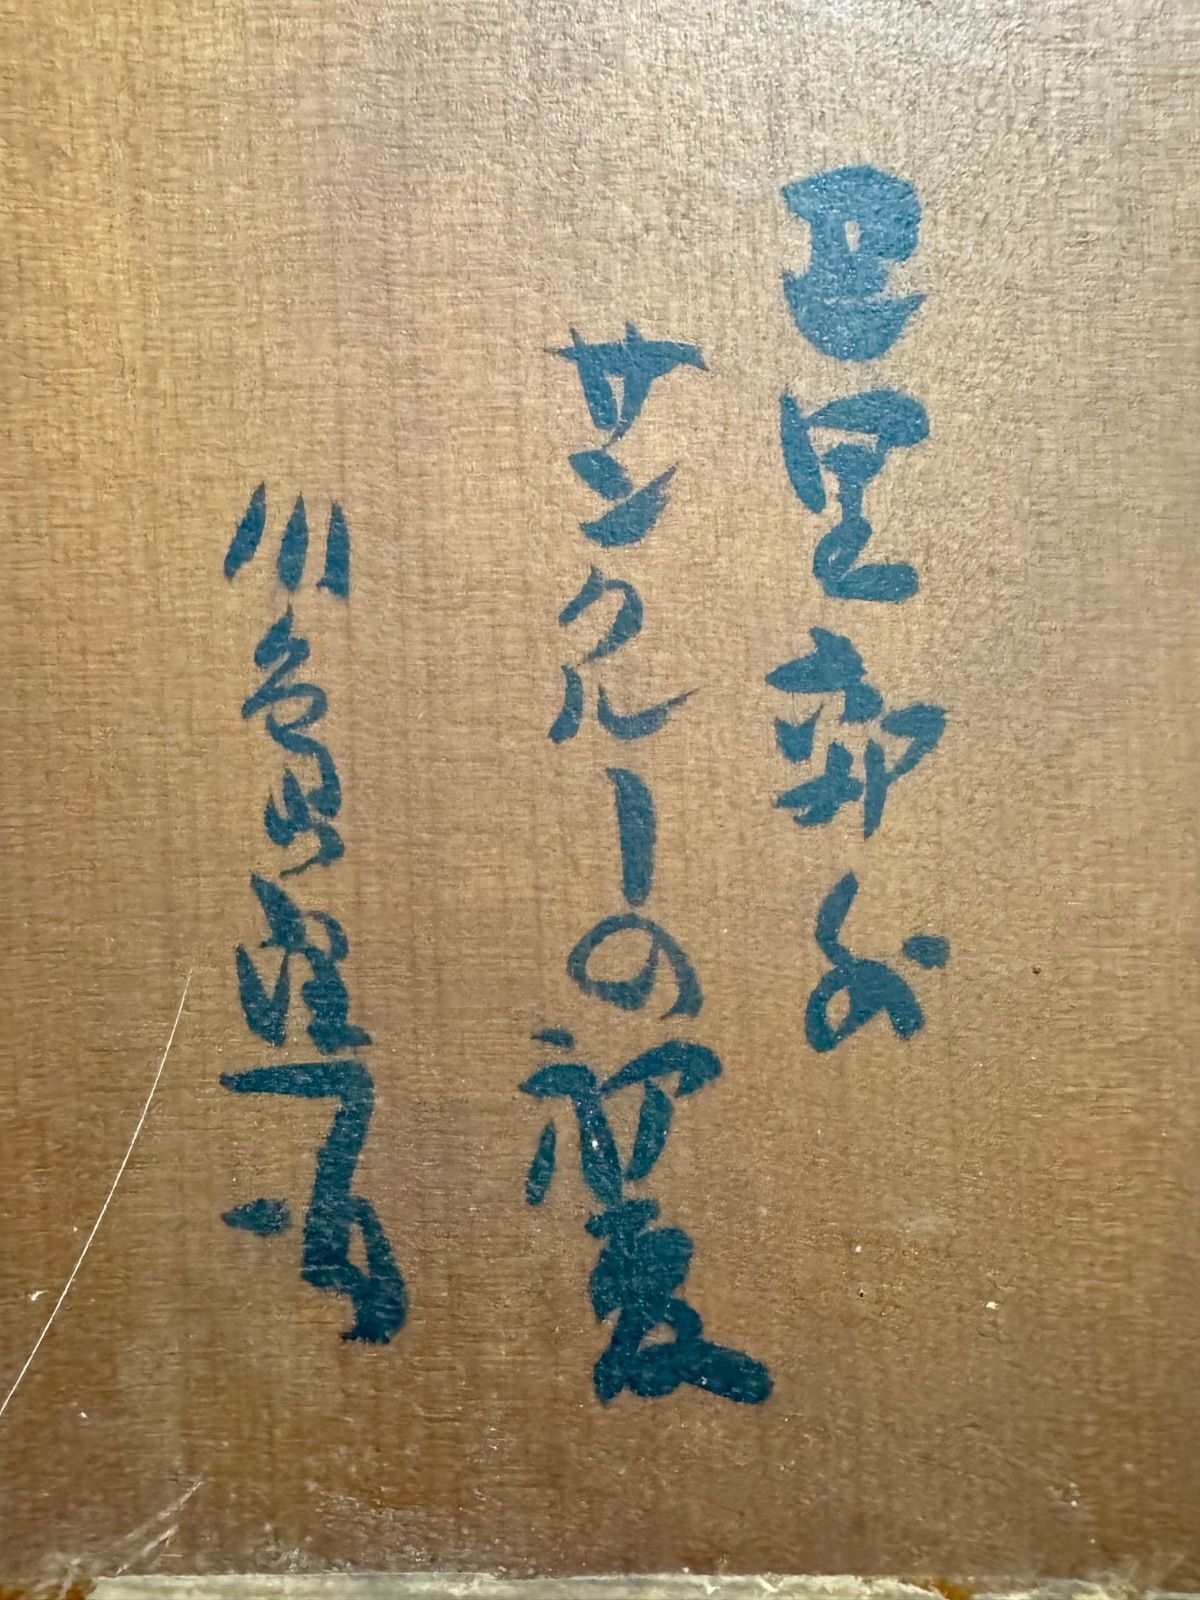 巴里郊外
サンクルーの初夏
川島理一郎